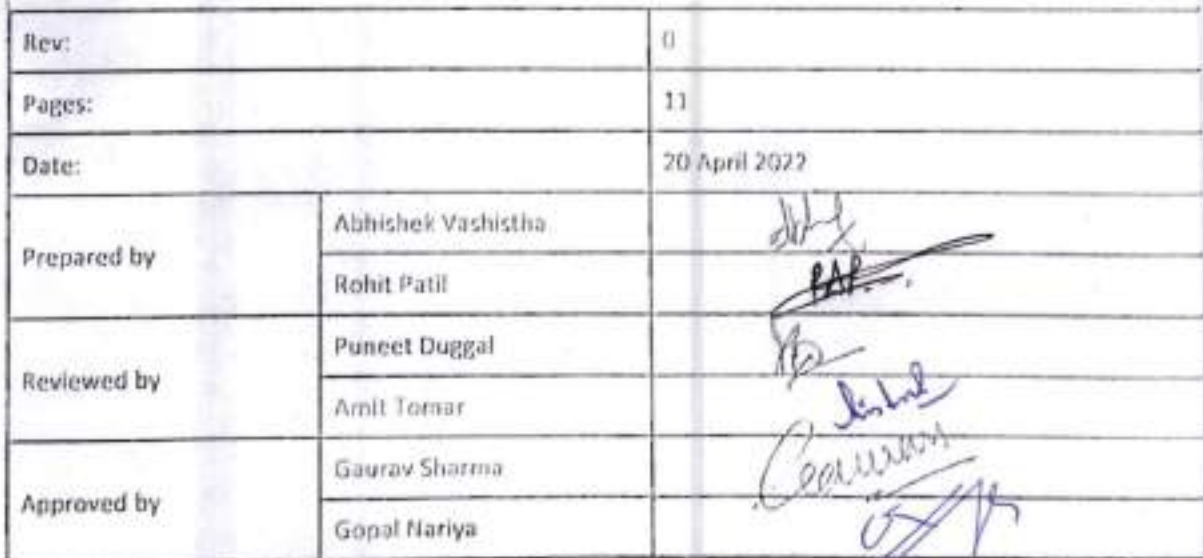 Rev: 0
Pages: 11
Date: 20 April 2022
Prepared by
Abhishek Vashistha
Rohit Patil
RAP
Reviewed by
Puneet Duggal
Amit Tomar
Approved by
Gaurav Sharma
Gaurav
Gopal Nariya